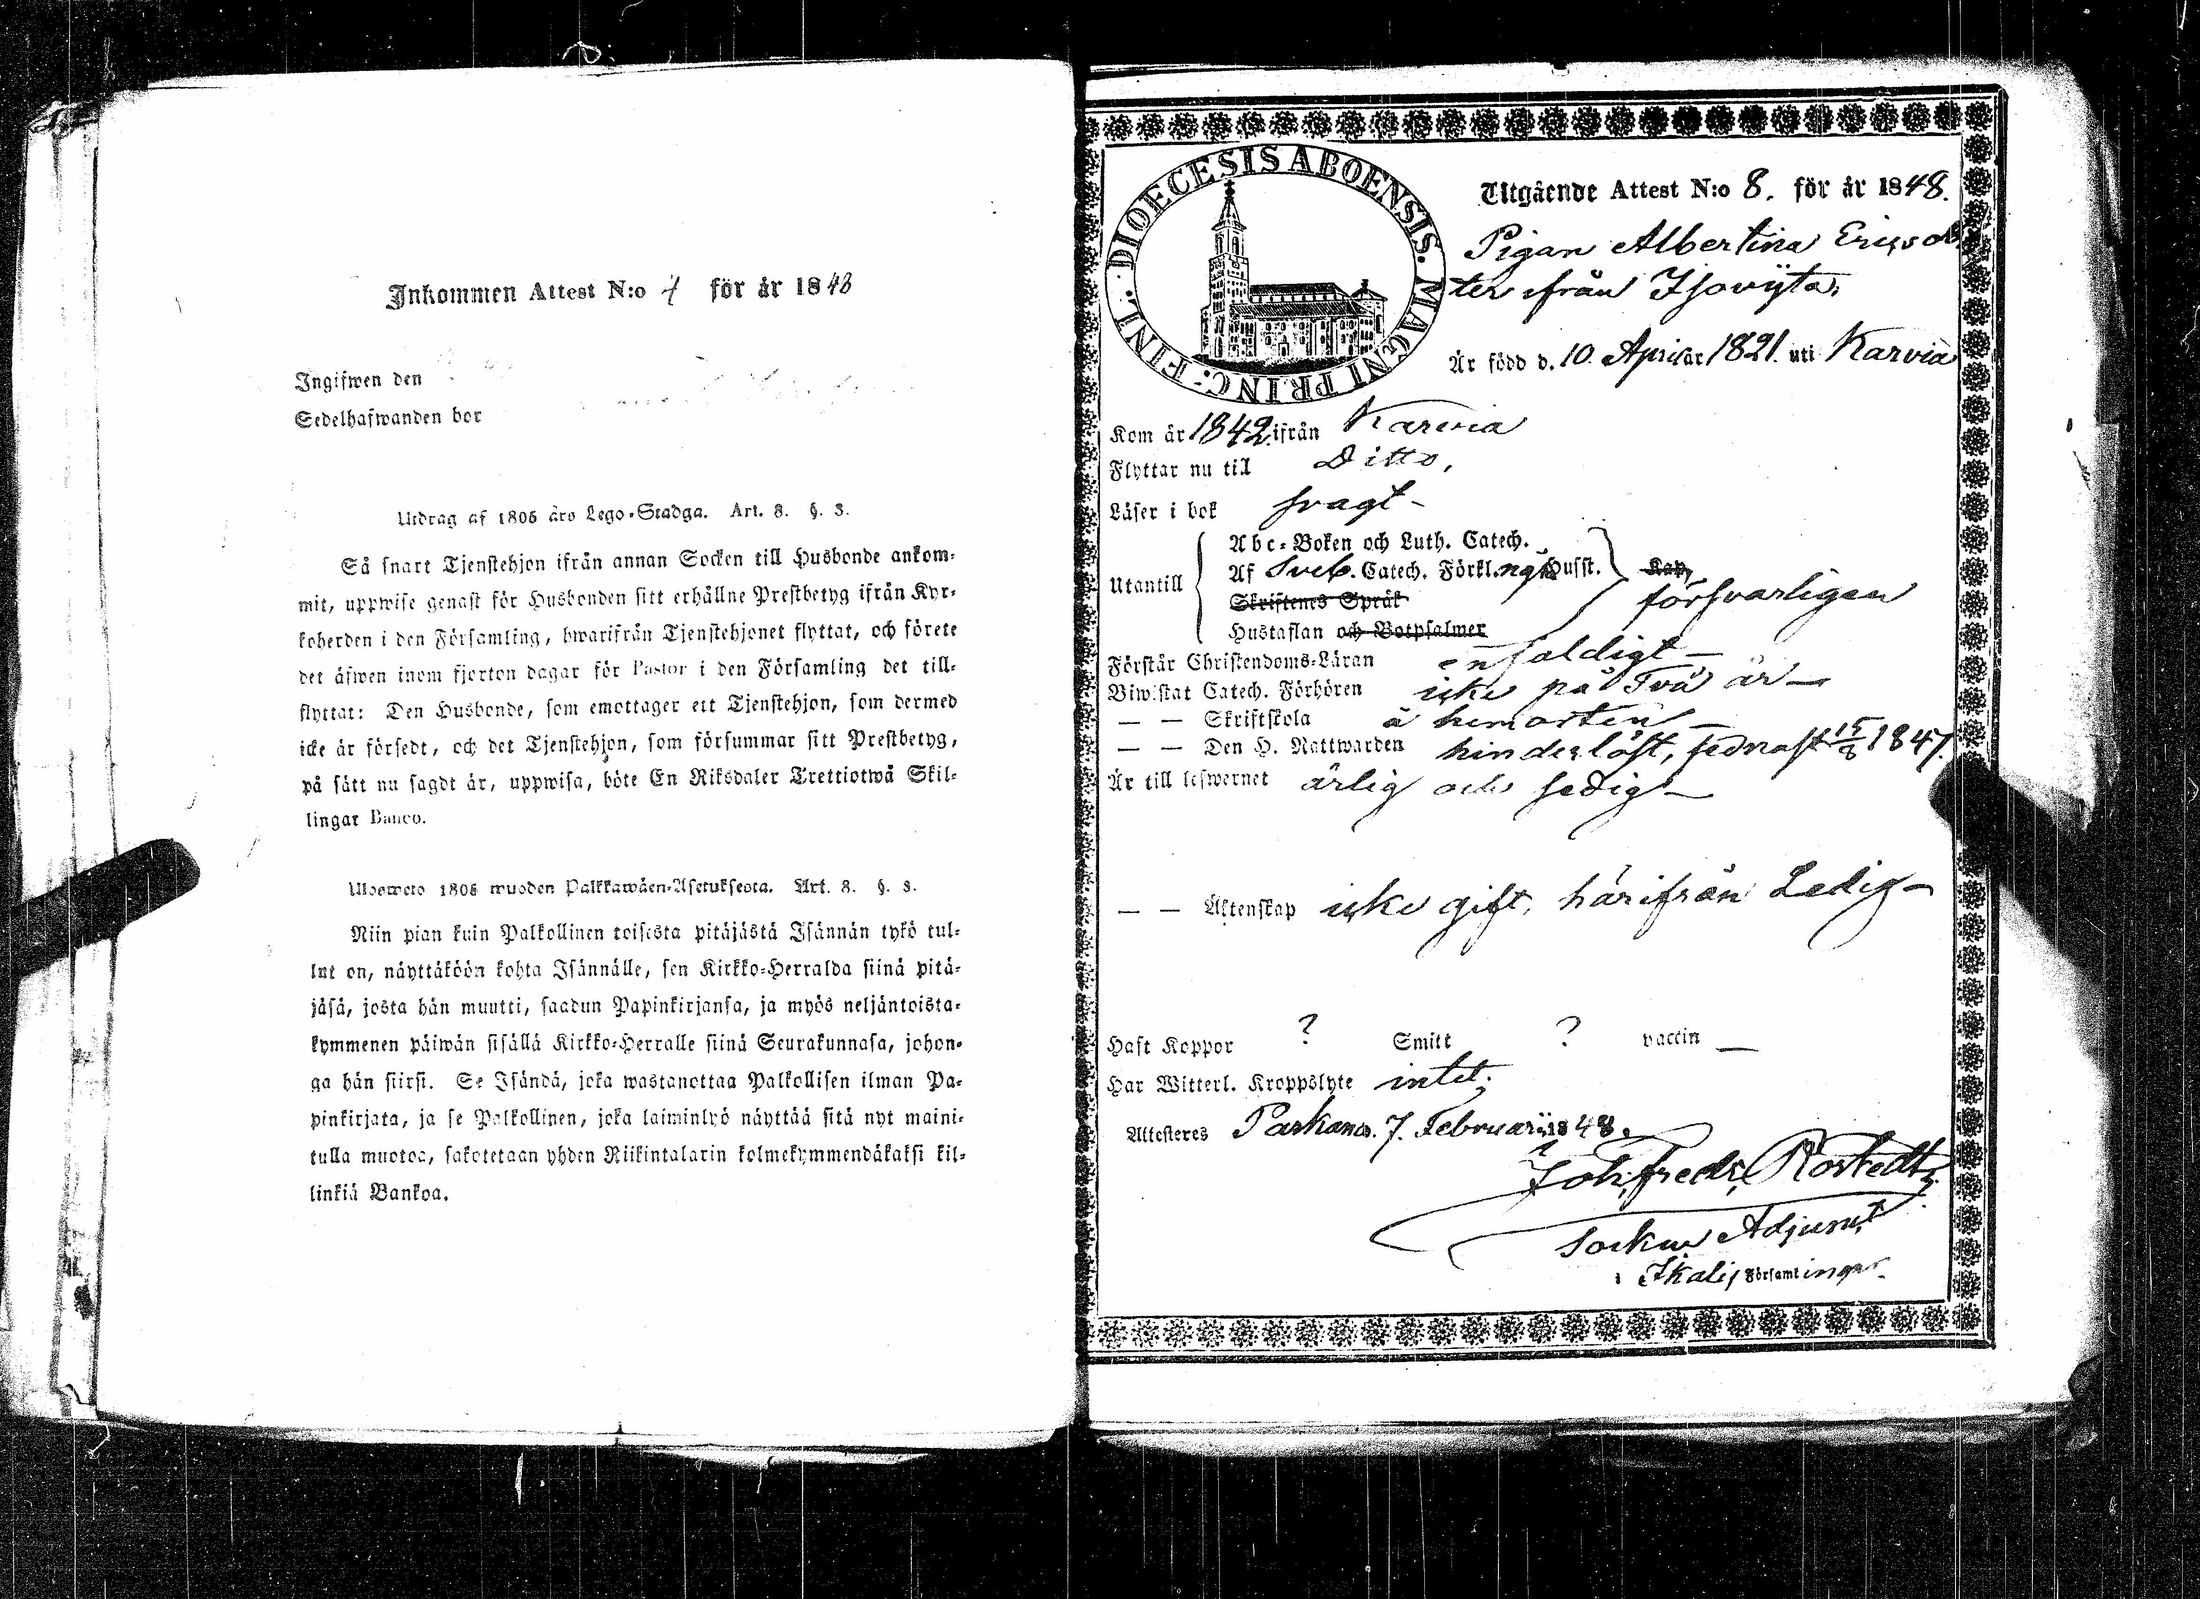 Inkommen Attest N:o 4 för år 1848
Ingifwen den
Sedelhafwanden bor
Utdrag af 1805 års Lego-Stadga. Art. 8. §. 3.
Så snart Tjenstehjon ifrån annan Socken till Husbonde ankom-
mit, uppwise genast för Husbonden sitt erhållne Prestbetyg ifrån Kyr-
koherden i den Församling, hwarifrån Tjenstehjonet flyttat, och förete
det äfwen inom fjorton dagar för Pastor i den Församling det till-
flyttat: Den Husbonde, som emottager ett Tjenstehjon, som dermed
icke är försedt, och det Tjenstehjon, som försummar sitt Prestbetyg,
på sätt nu sagdt är, uppwisa, böte En Riksdaler Trettiotwå Skil-
lingar Banco.
Ulosweto 1805 wuoden Palkkawäen-Asetuksesta. Art. 8. §. 3.
Niin pian kuin Palkollinen toisesta pitäjästä Isännän tykö tul-
lut on, näyttäköön kohta Isännälle, sen Kirkko-Herralda siinä pitä-
jäsä, josta hän muutti, saadun Papinkirjansa, ja myös neljäntoista-
kymmenen päiwän sisällä Kirkko-Herralle siinä Seurakunnasa, johon-
ga hän siirsi. Se Isändä, joka wastanottaa Palkollisen ilman Pa-
pinkirjata, ja se Palkollinen, joka laiminlyö näyttää sitä nyt maini-
tulla muotoa, sakotetaan yhden Riikintalarin kolmekymmendäkaksi kil-
linkiä Bankoa.
DIOECESIS ABOENSIS. MAGNI PRINC: FINL.
Utgående Attest N:o 8. för år 1848.
Pigan Albertina Ericsdot
ter ifrån Isoviita,
Är född d. 10 April år 1821. uti Karvia
Kom år 1842 ifrån Karvia
Flyttar nu till Ditto,
Läser i bok svagt -
Abc-Boken och Luth. Catech.
Utantill Af Sveb. Catech. Förkl.ng Husst. försvarligen
Skriftenes Språk
Hustaflan och Botpsalmer
Förstår Christendoms-Läran enfaldigt -
Biwistat Catech. Förhören icke på två år -
— — Skriftskola å hemorten -
— — Den H. Nattwarden hinderlöst, sednast 15/8 1847.
Är till lefwernet ärlig och sedig -
— — Äktenskap icke gift, härifrån Ledig -
Haft Koppor ? Smitt ? vaccin —
Har Witterl. Kroppslyte intet;
Attesteres Parkano. 7. Februarii 1848.
Joh. Fredr. Rostedt.
Sockne Adjunct
i Ikalis Församlingar.